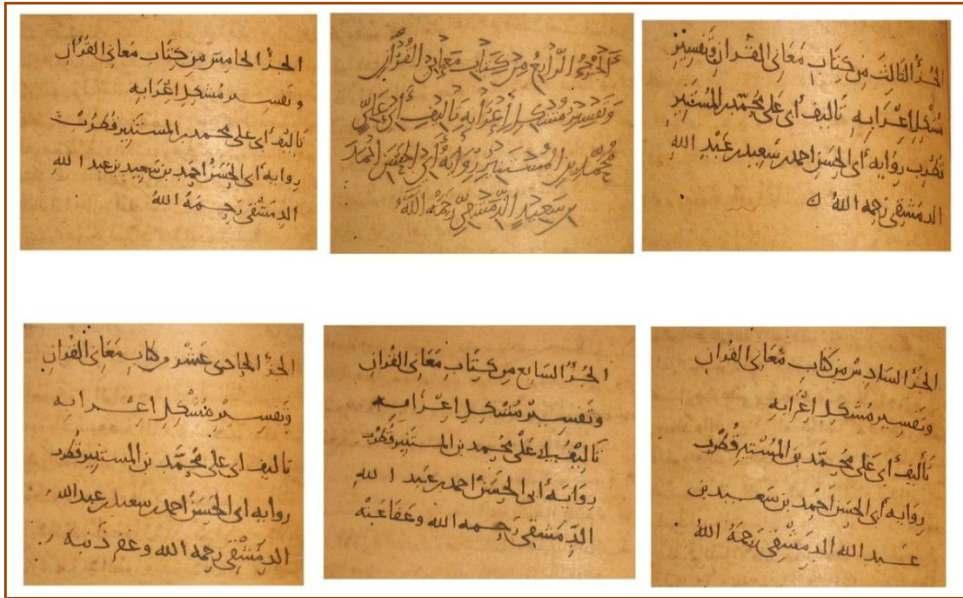 الجزُ الثالث من كتابِ مَعَانِى القران وَتفسِيرِ
مُشكِلِ اعْرَابِهِ تَاليف أبى عَلى مُحمّدِ بن المُسْتنِير
قُطرُب رِوَايَه أبى الحَسَنِ احمد بن سَعِيد بن عَبدِ اللهِ
الدمَشقِى رَحِمه اللهُ
الجُزْءُ الرَّابِعُ مِنْ كِتَابِ مَعَانِي الْقُرْآنِ
وَتَفْسِيْرِ مُشْكِلِ إِعْرَابِهِ تَالِيفِ أَبِي عَلِيٍّ
مُحَمَّدِ بنِ المُسْتَنِيرِ رِوَايَةُ أَبِي الحَسَنِ أَحْمَدَ
بنِ سَعِيدٍ الدِّمَشْقِيِّ رَحِمَهُ اللَّهُ
الجزُ الخامِسَ مِن كِتَاب مَعَانِى القُرانِ
وتفسِيرِ مُشكِلِ اعْرَابِهِ
تَاليْف أبى على محمد بن المستَنِير قُطرُب
روايه أبى الحَسَنُ احمد بن سَعِيد بن عبدِ اللهِ
الدِمَشْقِى رَحِمَهُ اللهُ
الجزُ السَادِسُ مِن كتَابِ مَعَانِى القُرانِ
وتَفسِيرِ مُشكِلِ اعْرَابِهِ
تَأليفُ أبى عَلى محمَّد بن المُسْتنِيرِ قُطْرُب
رِوَايَه أبى الحَسَنِ احمِد بن سَعِيد بن
عَبدِ الله الدِمَشْقِى رَحمَهُ اللهُ
الجُزُ السَابع مِن كِتَابِ مَعَانِى القُرانِ
وتَفسِيرِ مُشْكِلِ اعْرَابِه
تَاليْفُ عَلى محَمد بن المستَنِير قُطرُب
رِوَايَه أبى الحَسَنِ احمد بن عَبد الله
الدِّمَشقِى رَحِمَه الله وعَفَا عَنْهُ
الجزُ الحَادِى عَشَر من كتاب مَعَانِى القُرانِ
وتَفسِيْرِ مُشْكِلِ اعْرَابِه
تَاليف ابى على مُحَمَّد بن المستنِير قُطرُب
روايه ابى الحَسَنُ احمد بن سعيد بن عبد الله
الدِمَشْقِى رَحمه الله وغَفر ذَنبَه